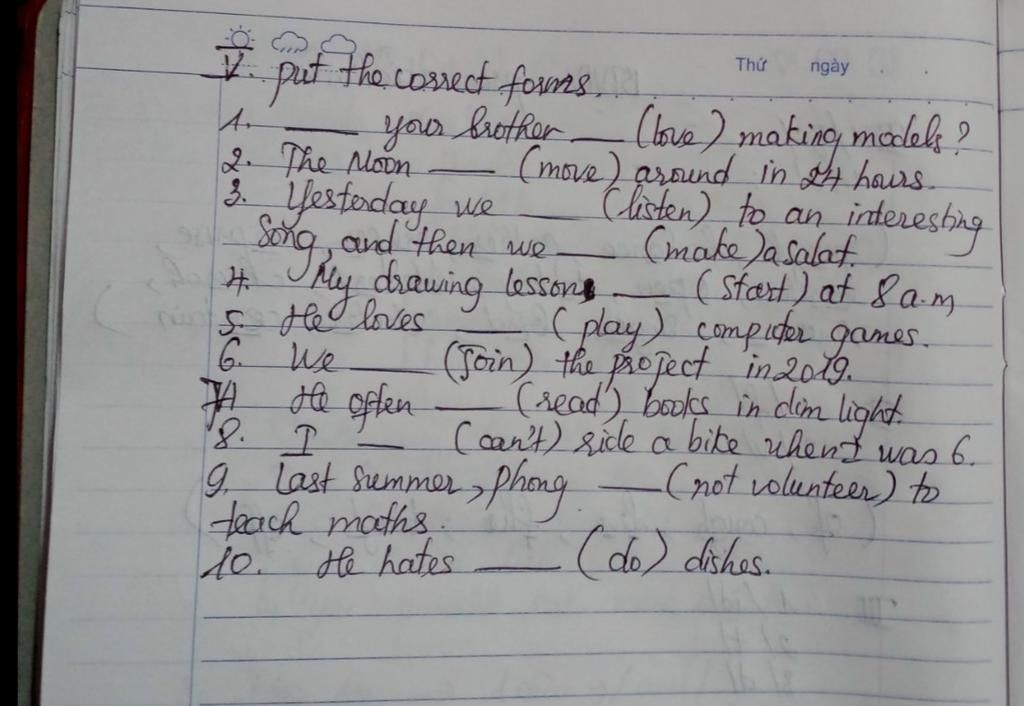 Thứ ngày
V. put the correct forms.
1. ___ your brother ___ (love) making models?
2. The Moon ___ (move) around in 24 hours.
3. Yesterday we ___ (listen) to an interesting
Song, and then we ___ (make) a salat.
4. My drawing lesson ___ (start) at 8 a.m
5. He loves ___ (play) computer games.
6. We ___ (Join) the project in 2019.
7. He often ___ (read) books in dim light.
8. I ___ (can't) ride a bike when I was 6.
9. Last summer, Phong ___ (not volunteer) to
teach maths.
10. He hates ___ (do) dishes.